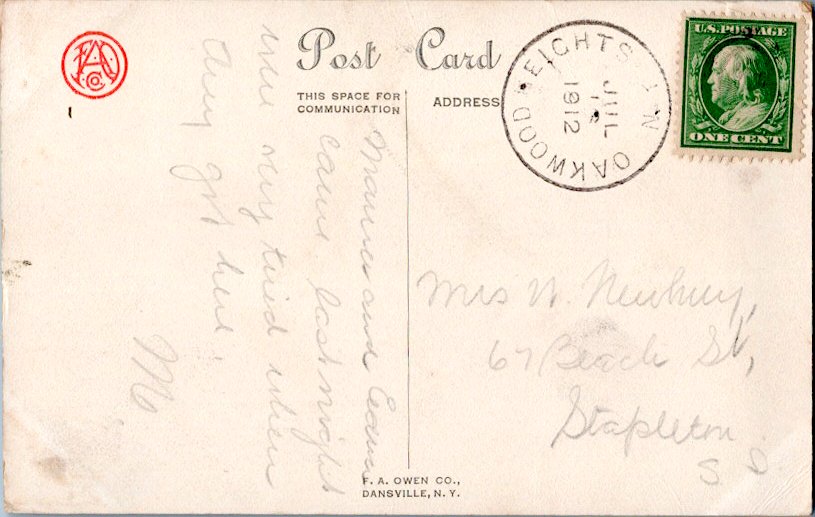 FAO Co.
Post Card
THIS SPACE FOR
COMMUNICATION
ADDRESS
OAKWOOD HEIGHTS N.Y.
JUL
1912
U.S. POSTAGE
ONE CENT
Mamma and Edna
came last night
were very tired when
they got here.
M
Mrs W. Newbury,
67 Beach St,
Stapleton
F. A. OWEN CO.,
DANSVILLE, N. Y.